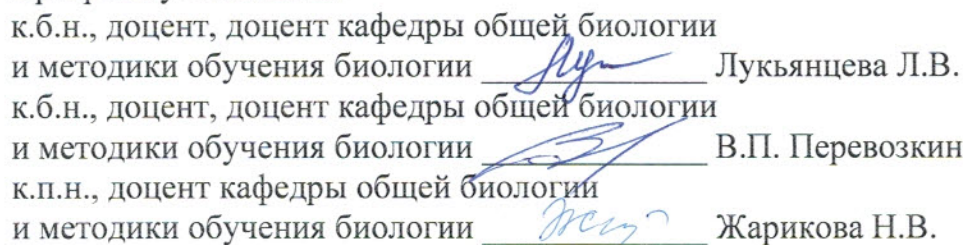 к.б.н., доцент, доцент кафедры общей биологии
и методики обучения биологии ____________ Лукьянцева Л.В.
к.б.н., доцент, доцент кафедры общей биологии
и методики обучения биологии ____________ В.П. Перевозкин
к.п.н., доцент кафедры общей биологии
и методики обучения биологии ____________ Жарикова Н.В.